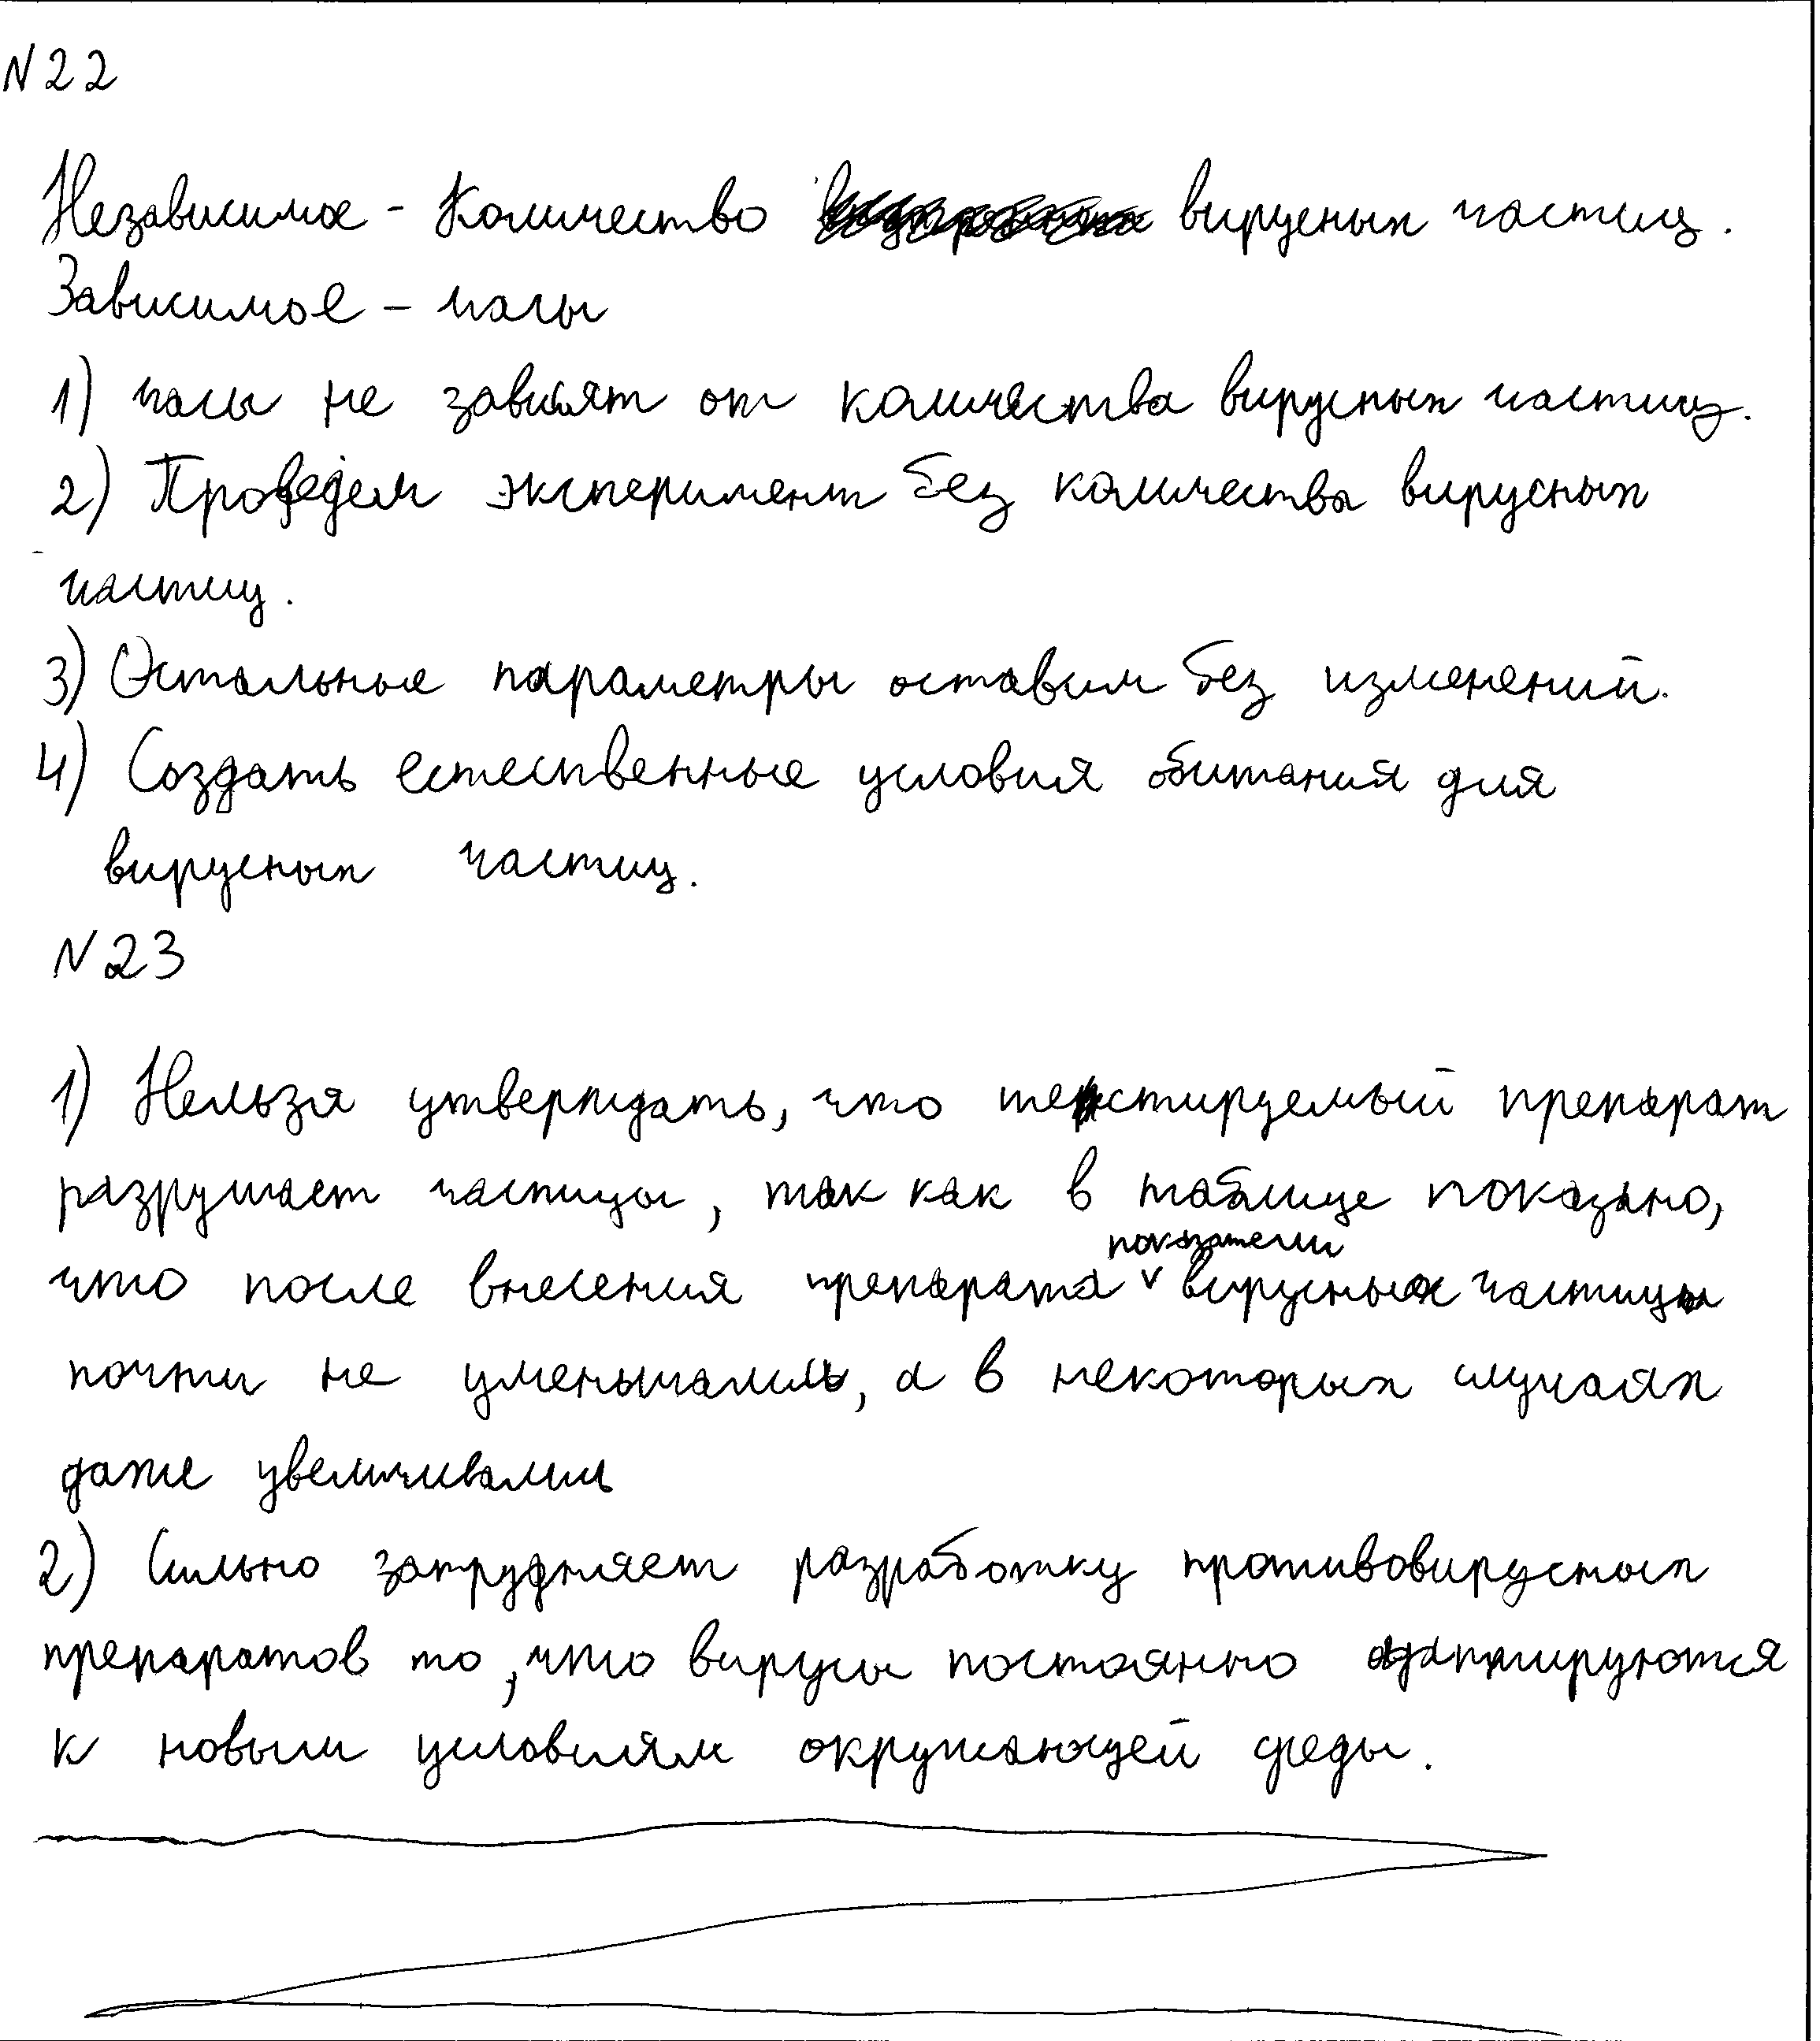 N22
Независимое - Количество вирусных частиц.
Зависимое - часы
1) часы не зависят от количества вирусных частиц.
2) Проведем эксперимент без количества вирусных
частиц.
3) Остальные параметры оставим без изменений.
4) Создать естественные условия обитания для
вирусных частиц.
N23
1) Нельзя утверждать, что тестируемый препарат
разрушает частицы, так как в таблице показано,
что после внесения препарата показатели вирусных частиц
почти не уменьшались, а в некоторых случаях
даже увеличивались
2) Сильно затрудняет разработку противовирусных
препаратов то, что вирусы постоянно адаптируются
к новым условиям окружающей среды.